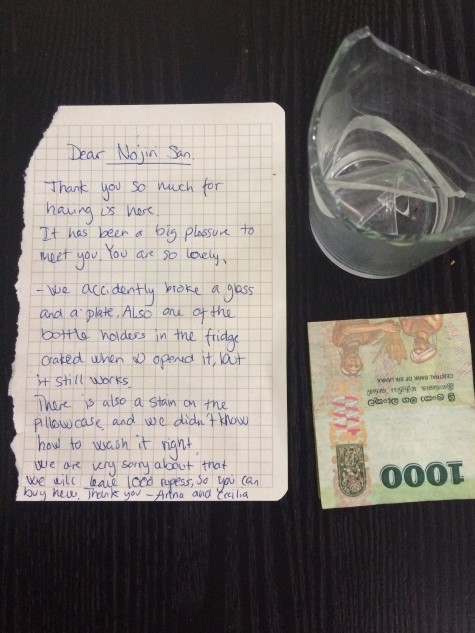 Dear Nojiri San.
Thank you so much for
having us here.
It has been a big plassure to
meet you. You are so lovely.
- We accidently broke a glass
and a plate. Also one of the
bottle holders in the fridge
craked when w opened it, but
it still works.
There is also a stain on the
pillowcase and we didn't know
how to wash it right.
We are very sorry about that
We will leave 1000 rupess, so you can
buy new. Thank you - Anna and Cecilia
CENTRAL BANK OF SRI LANKA
ශ්‍රී ලංකා මහ බැංකුව
1000